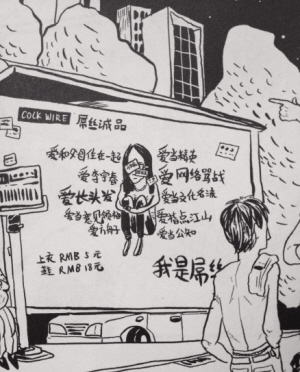 COCK WIRE 屌丝诚品
爱和父母住在一起
爱李宇春
爱长头发
爱当意见领袖
爱当精英
爱网络骂战
爱当文化名流
爱指点江山
爱当公知
上衣 RMB 5元
RMB 18元
我是屌丝